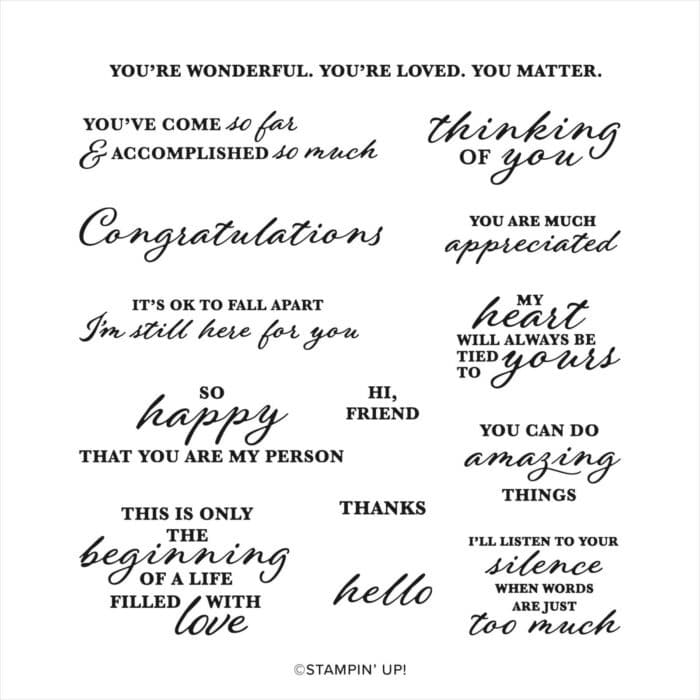 YOU'RE WONDERFUL. YOU'RE LOVED. YOU MATTER.
YOU'VE COME so far
& ACCOMPLISHED so much
thinking
OF you
Congratulations
YOU ARE MUCH
appreciated
IT'S OK TO FALL APART
I'm still here for you
MY
heart
WILL ALWAYS BE
TIED
TO yours
SO
happy
THAT YOU ARE MY PERSON
HI,
FRIEND
YOU CAN DO
amazing
THINGS
THIS IS ONLY
THE
beginning
OF A LIFE
FILLED WITH
love
THANKS
hello
I'LL LISTEN TO YOUR
silence
WHEN WORDS
ARE JUST
too much
©STAMPIN' UP!